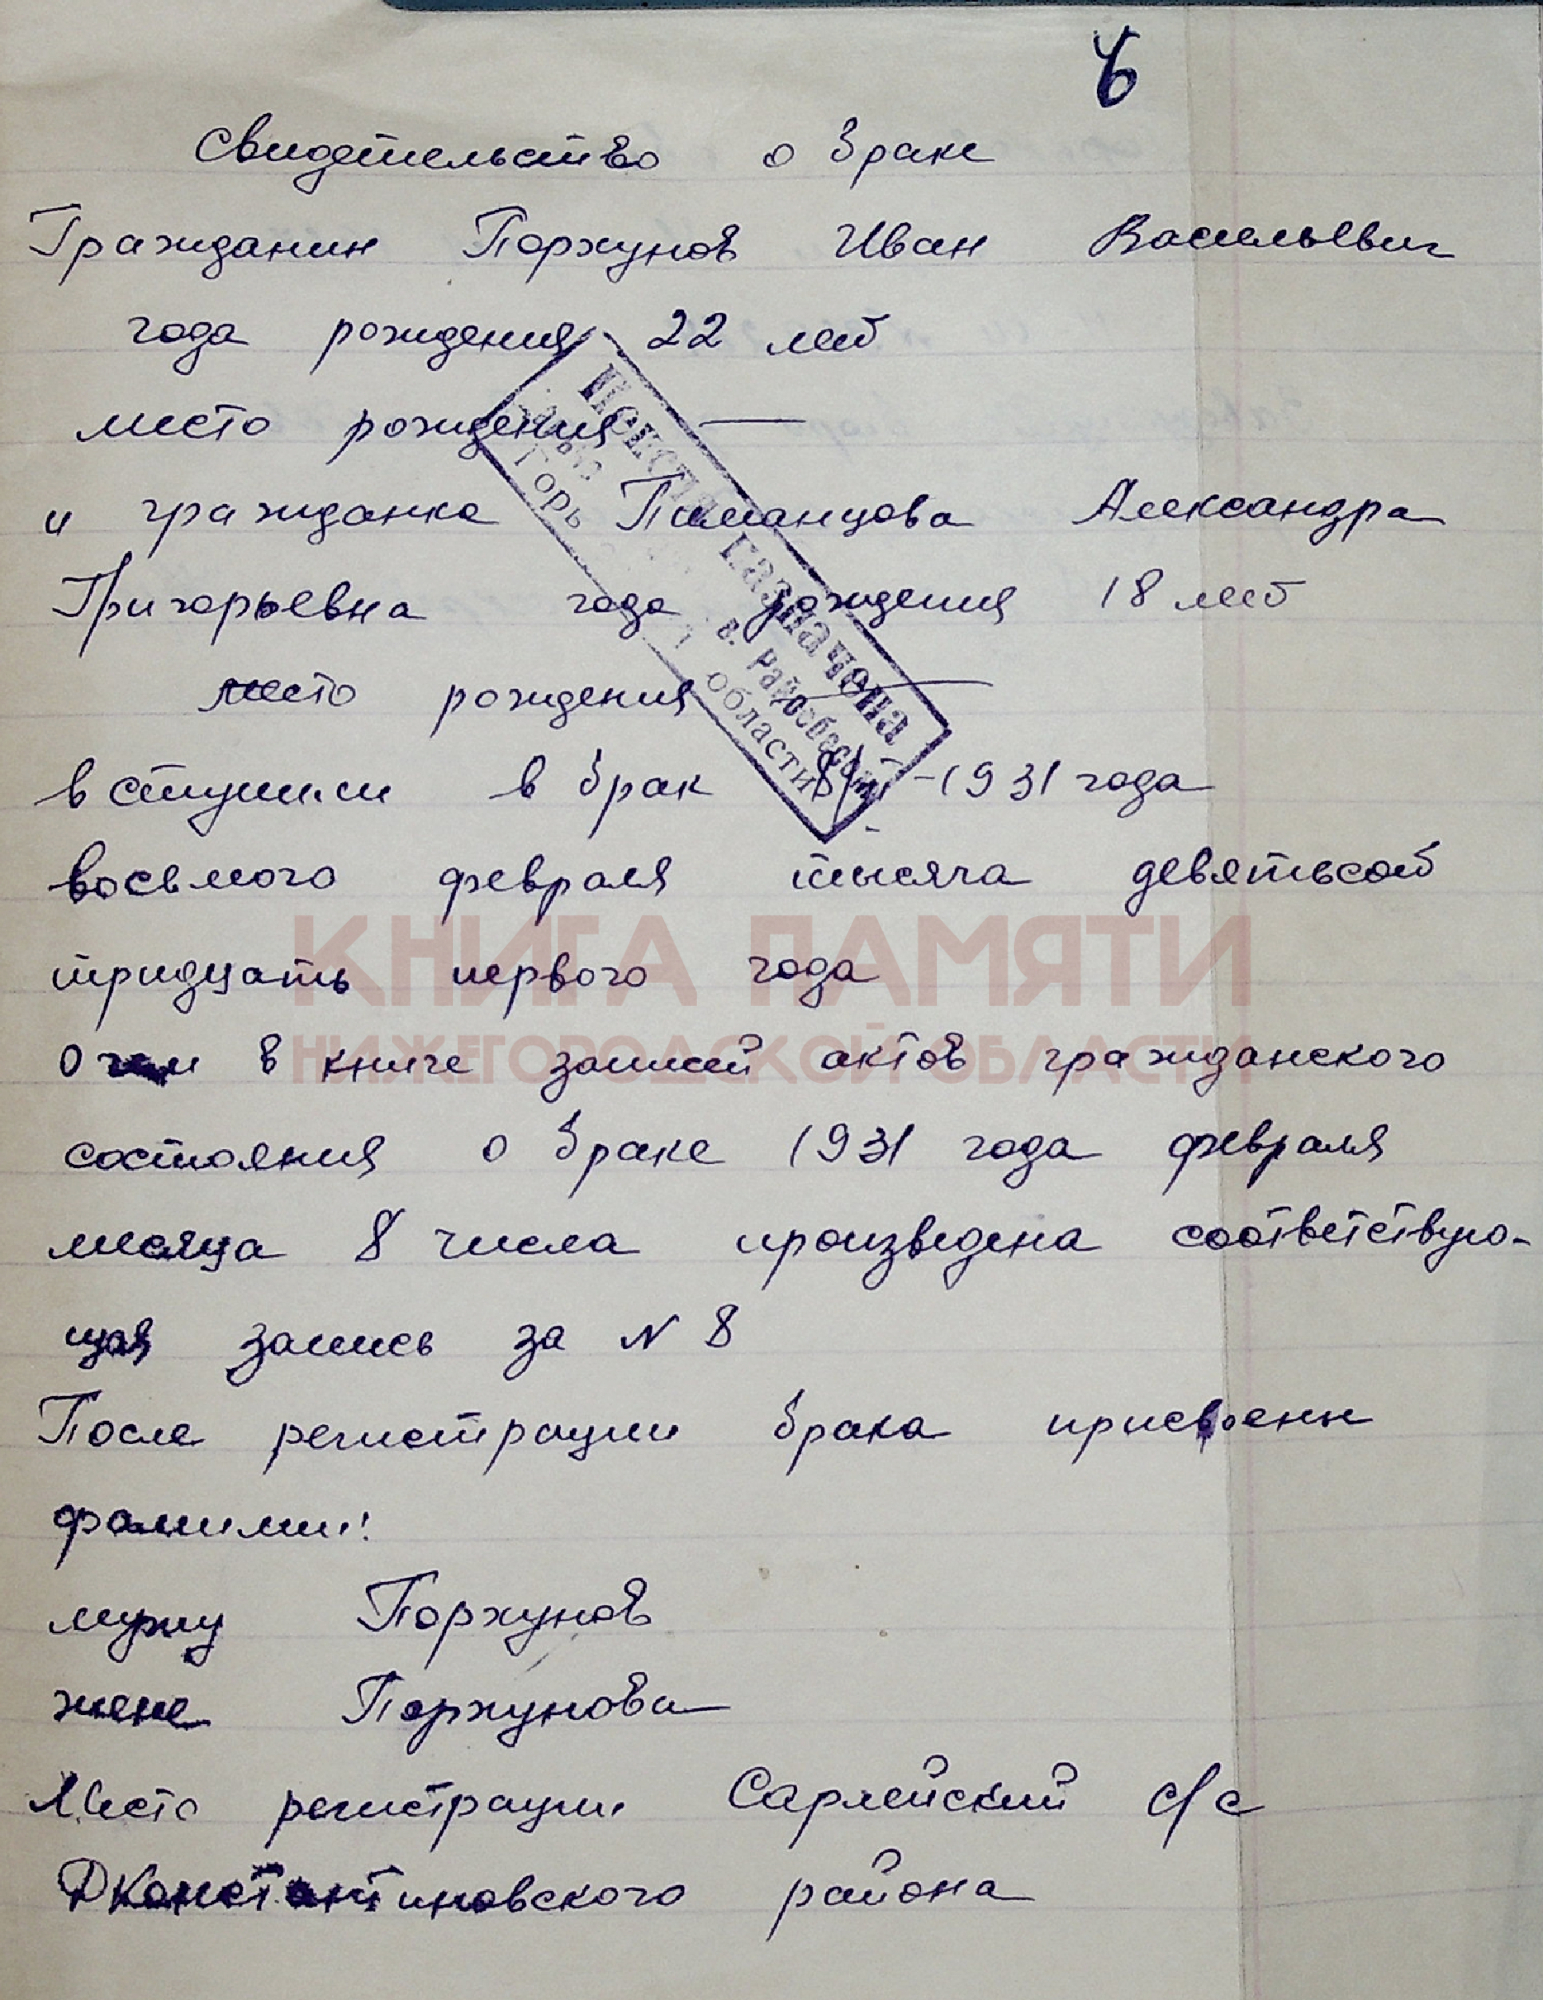 6
Свидетельство о браке
Гражданин Порхунов Иван Васильевич
года рождения 22 лет
место рождения —
и гражданка Пиманцова Александра
Григорьевна года рождения 18 лет
место рождения —
вступили в брак 8/II-1931 года
восьмого февраля тысяча девятьсот
тридцать первого года
КНИГА ПАМЯТИ
НИЖЕГОРОДСКОЙ ОБЛАСТИ
о чем в книге записей актов гражданского
состояния о браке 1931 года февраля
месяца 8 числа произведена соответствую-
щая запись за N 8
После регистрации брака присвоены
фамилии:
мужу Порхунов
жене Порхунова
Место регистрации Сарлейский с/с
ДКонстантиновского района
Пенсия назначена
в. Райсобесом
Горь области